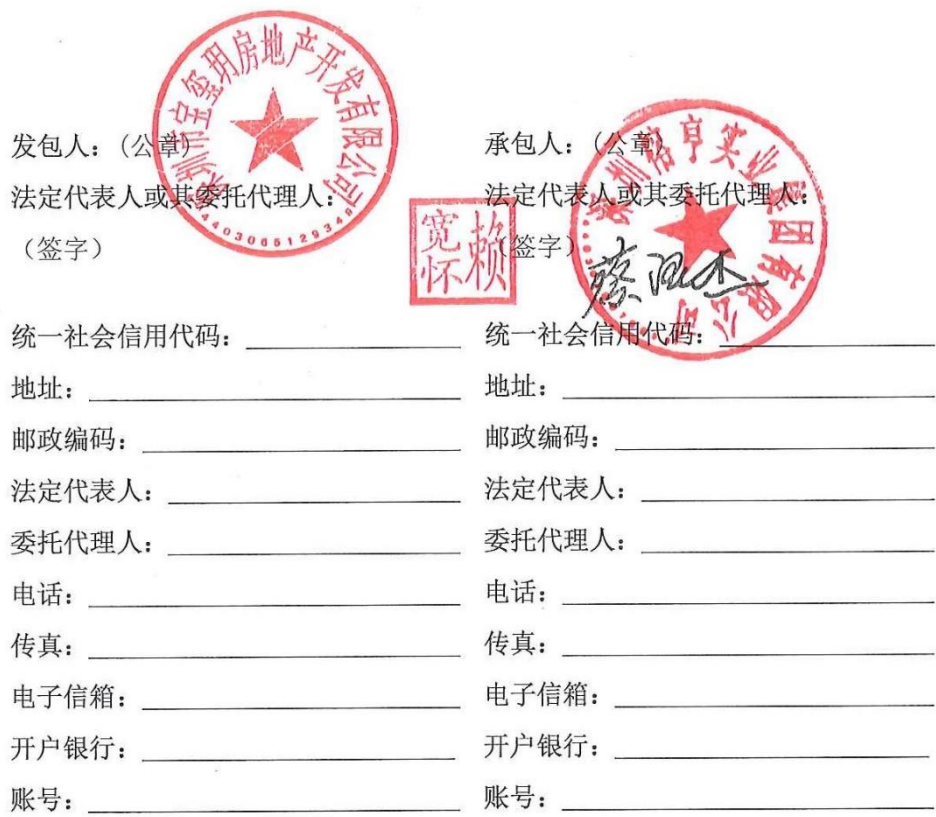 深圳市宝玺玥房地产开发有限公司
4403065129349
发包人：（公章）
法定代表人或其委托代理人：
（签字）
赖
宽怀
统一社会信用代码：
地址：
邮政编码：
法定代表人：
委托代理人：
电话：
传真：
电子信箱：
开户银行：
账号：
承包人：（公章）
法定代表人或其委托代理人：
（签字）
亨实业集团有限公司
统一社会信用代码：
地址：
邮政编码：
法定代表人：
委托代理人：
电话：
传真：
电子信箱：
开户银行：
账号：